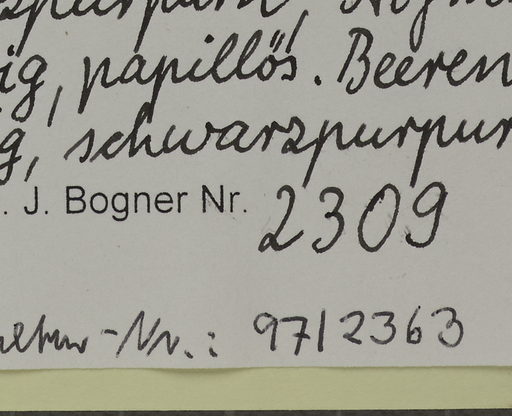 ig, papillös. Beeren
g, schwarzpurpur
. J. Bogner Nr. 2309
-Nr.: 97/2363